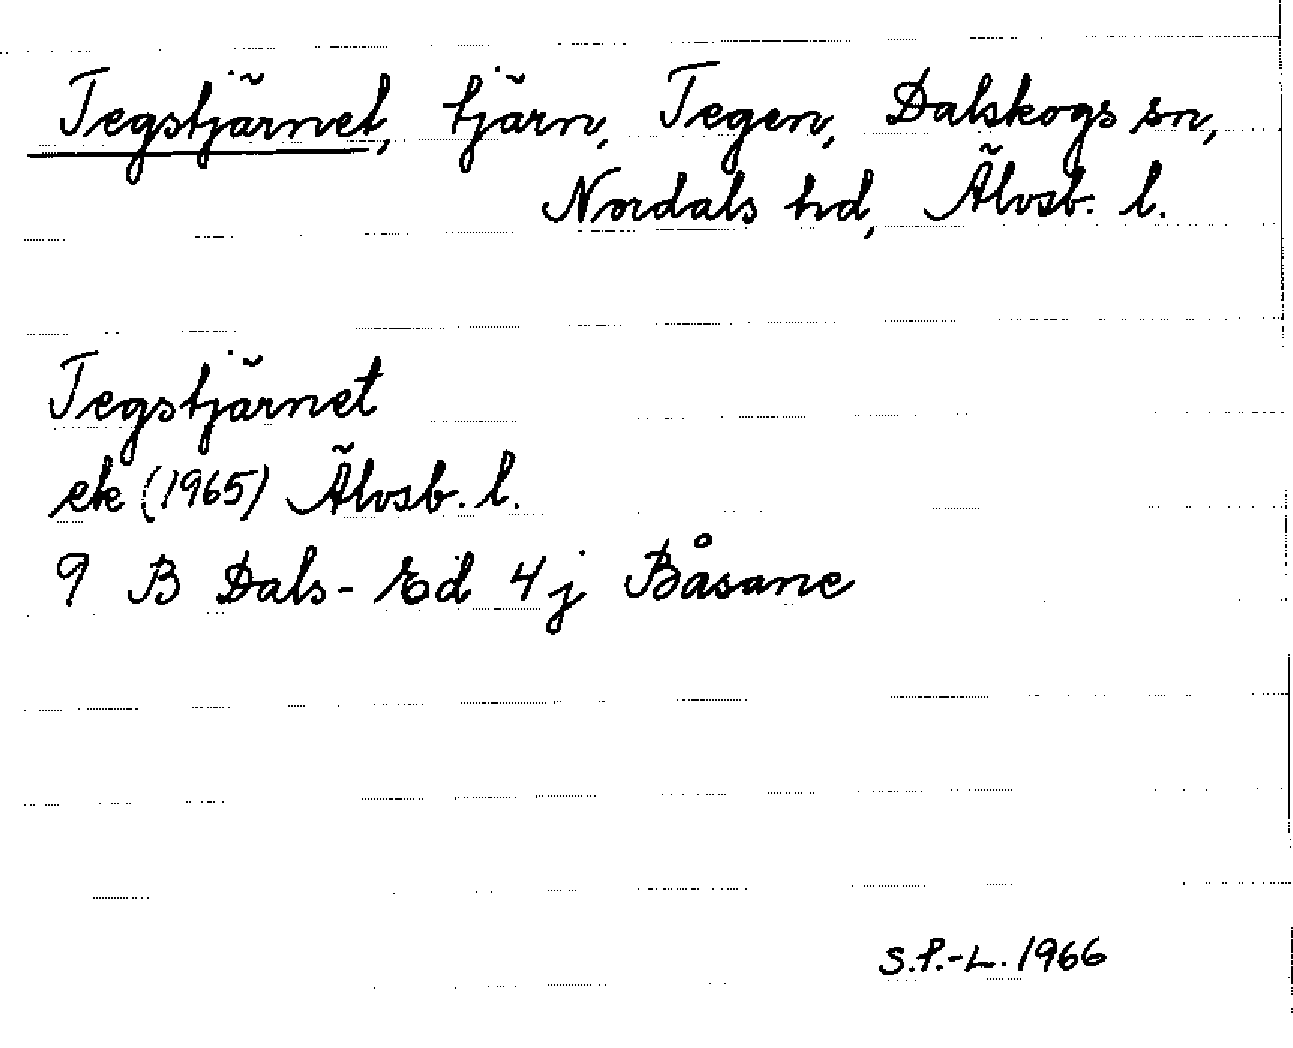 Tegstjärnet, tjärn, Tegen, Dalskogs sn,
Nordals hd, Älvsb. l.
Tegstjärnet
ek (1965) Älvsb. l.
9 B Dals-Ed 4j Båsane
S.P.-L. 1966